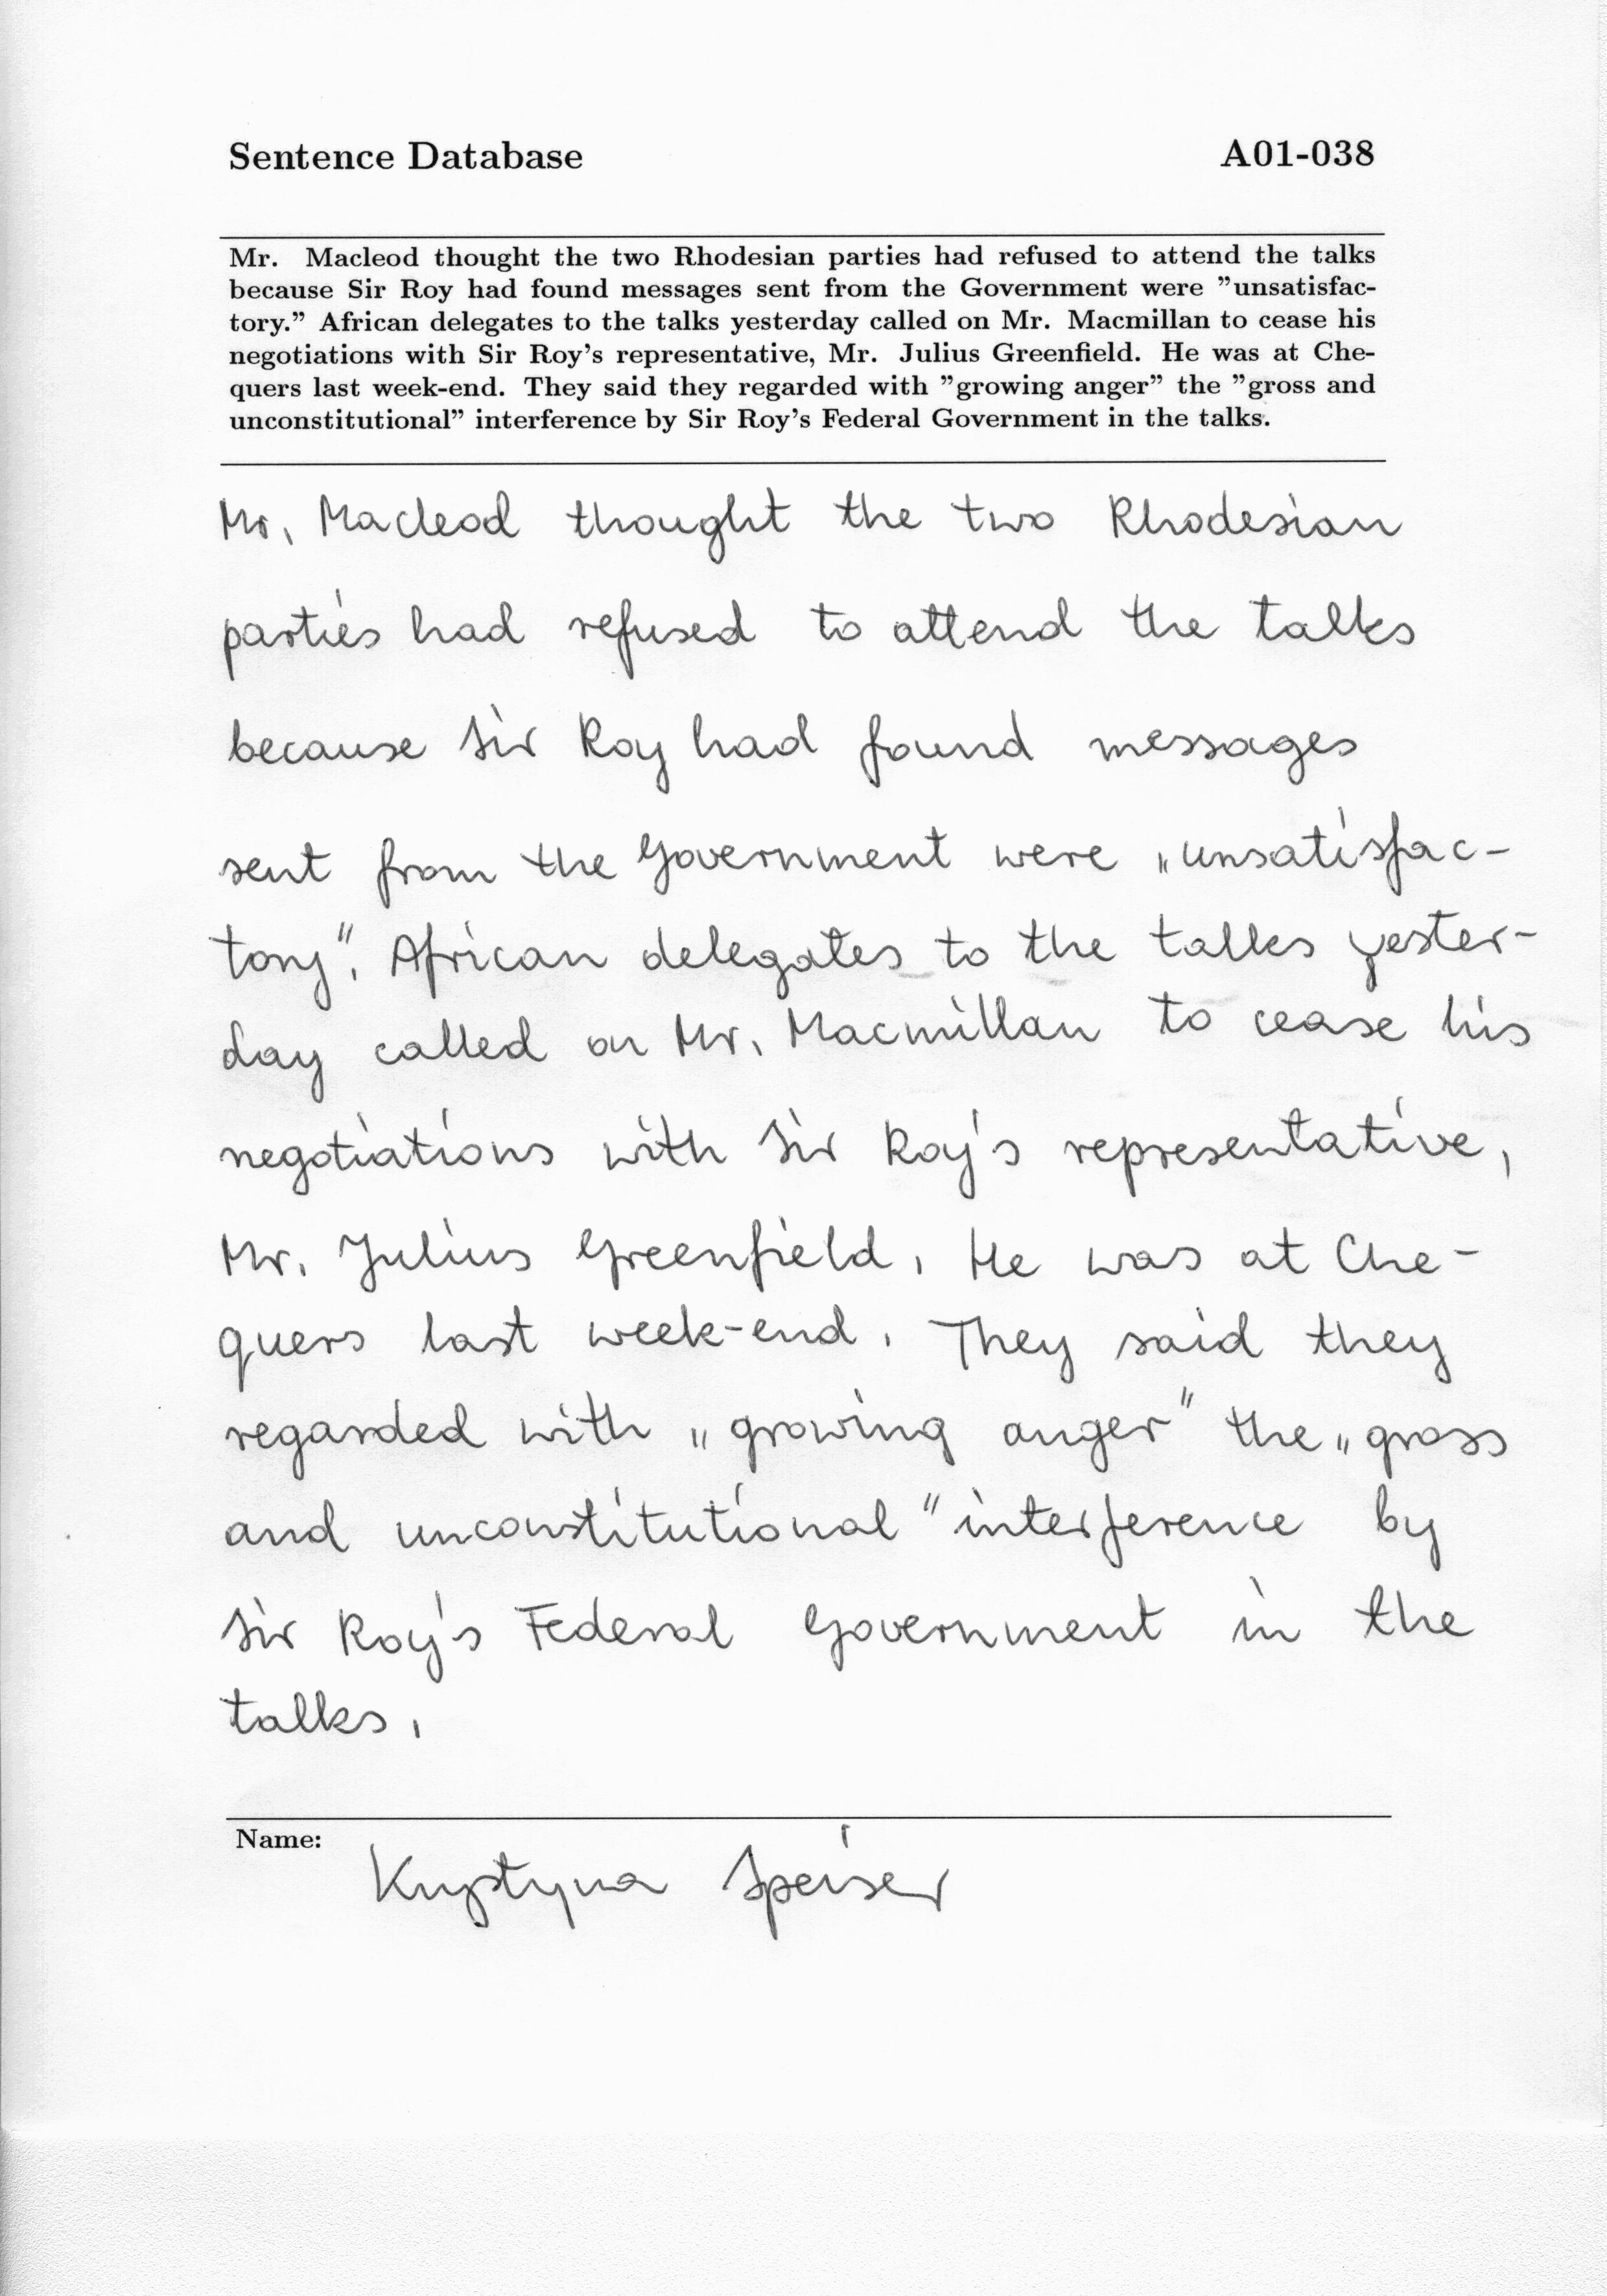 Sentence Database A01-038
Mr. Macleod thought the two Rhodesian parties had refused to attend the talks
because Sir Roy had found messages sent from the Government were ”unsatisfac-
tory.” African delegates to the talks yesterday called on Mr. Macmillan to cease his
negotiations with Sir Roy’s representative, Mr. Julius Greenfield. He was at Che-
quers last week-end. They said they regarded with ”growing anger” the ”gross and
unconstitutional” interference by Sir Roy’s Federal Government in the talks.
Mr. Macleod thought the two Rhodesian
parties had refused to attend the talks
because Sir Roy had found messages
sent from the Government were „unsatisfac-
tory“. African delegates to the talks yester-
day called on Mr. Macmillan to cease his
negotiations with Sir Roy's representative,
Mr. Julius Greenfield. He was at Che-
quers last week-end. They said they
regarded with „growing anger“ the „gross
and unconstitutional“ interference by
Sir Roy's Federal Government in the
talks.
Name: Krystyna Speiser